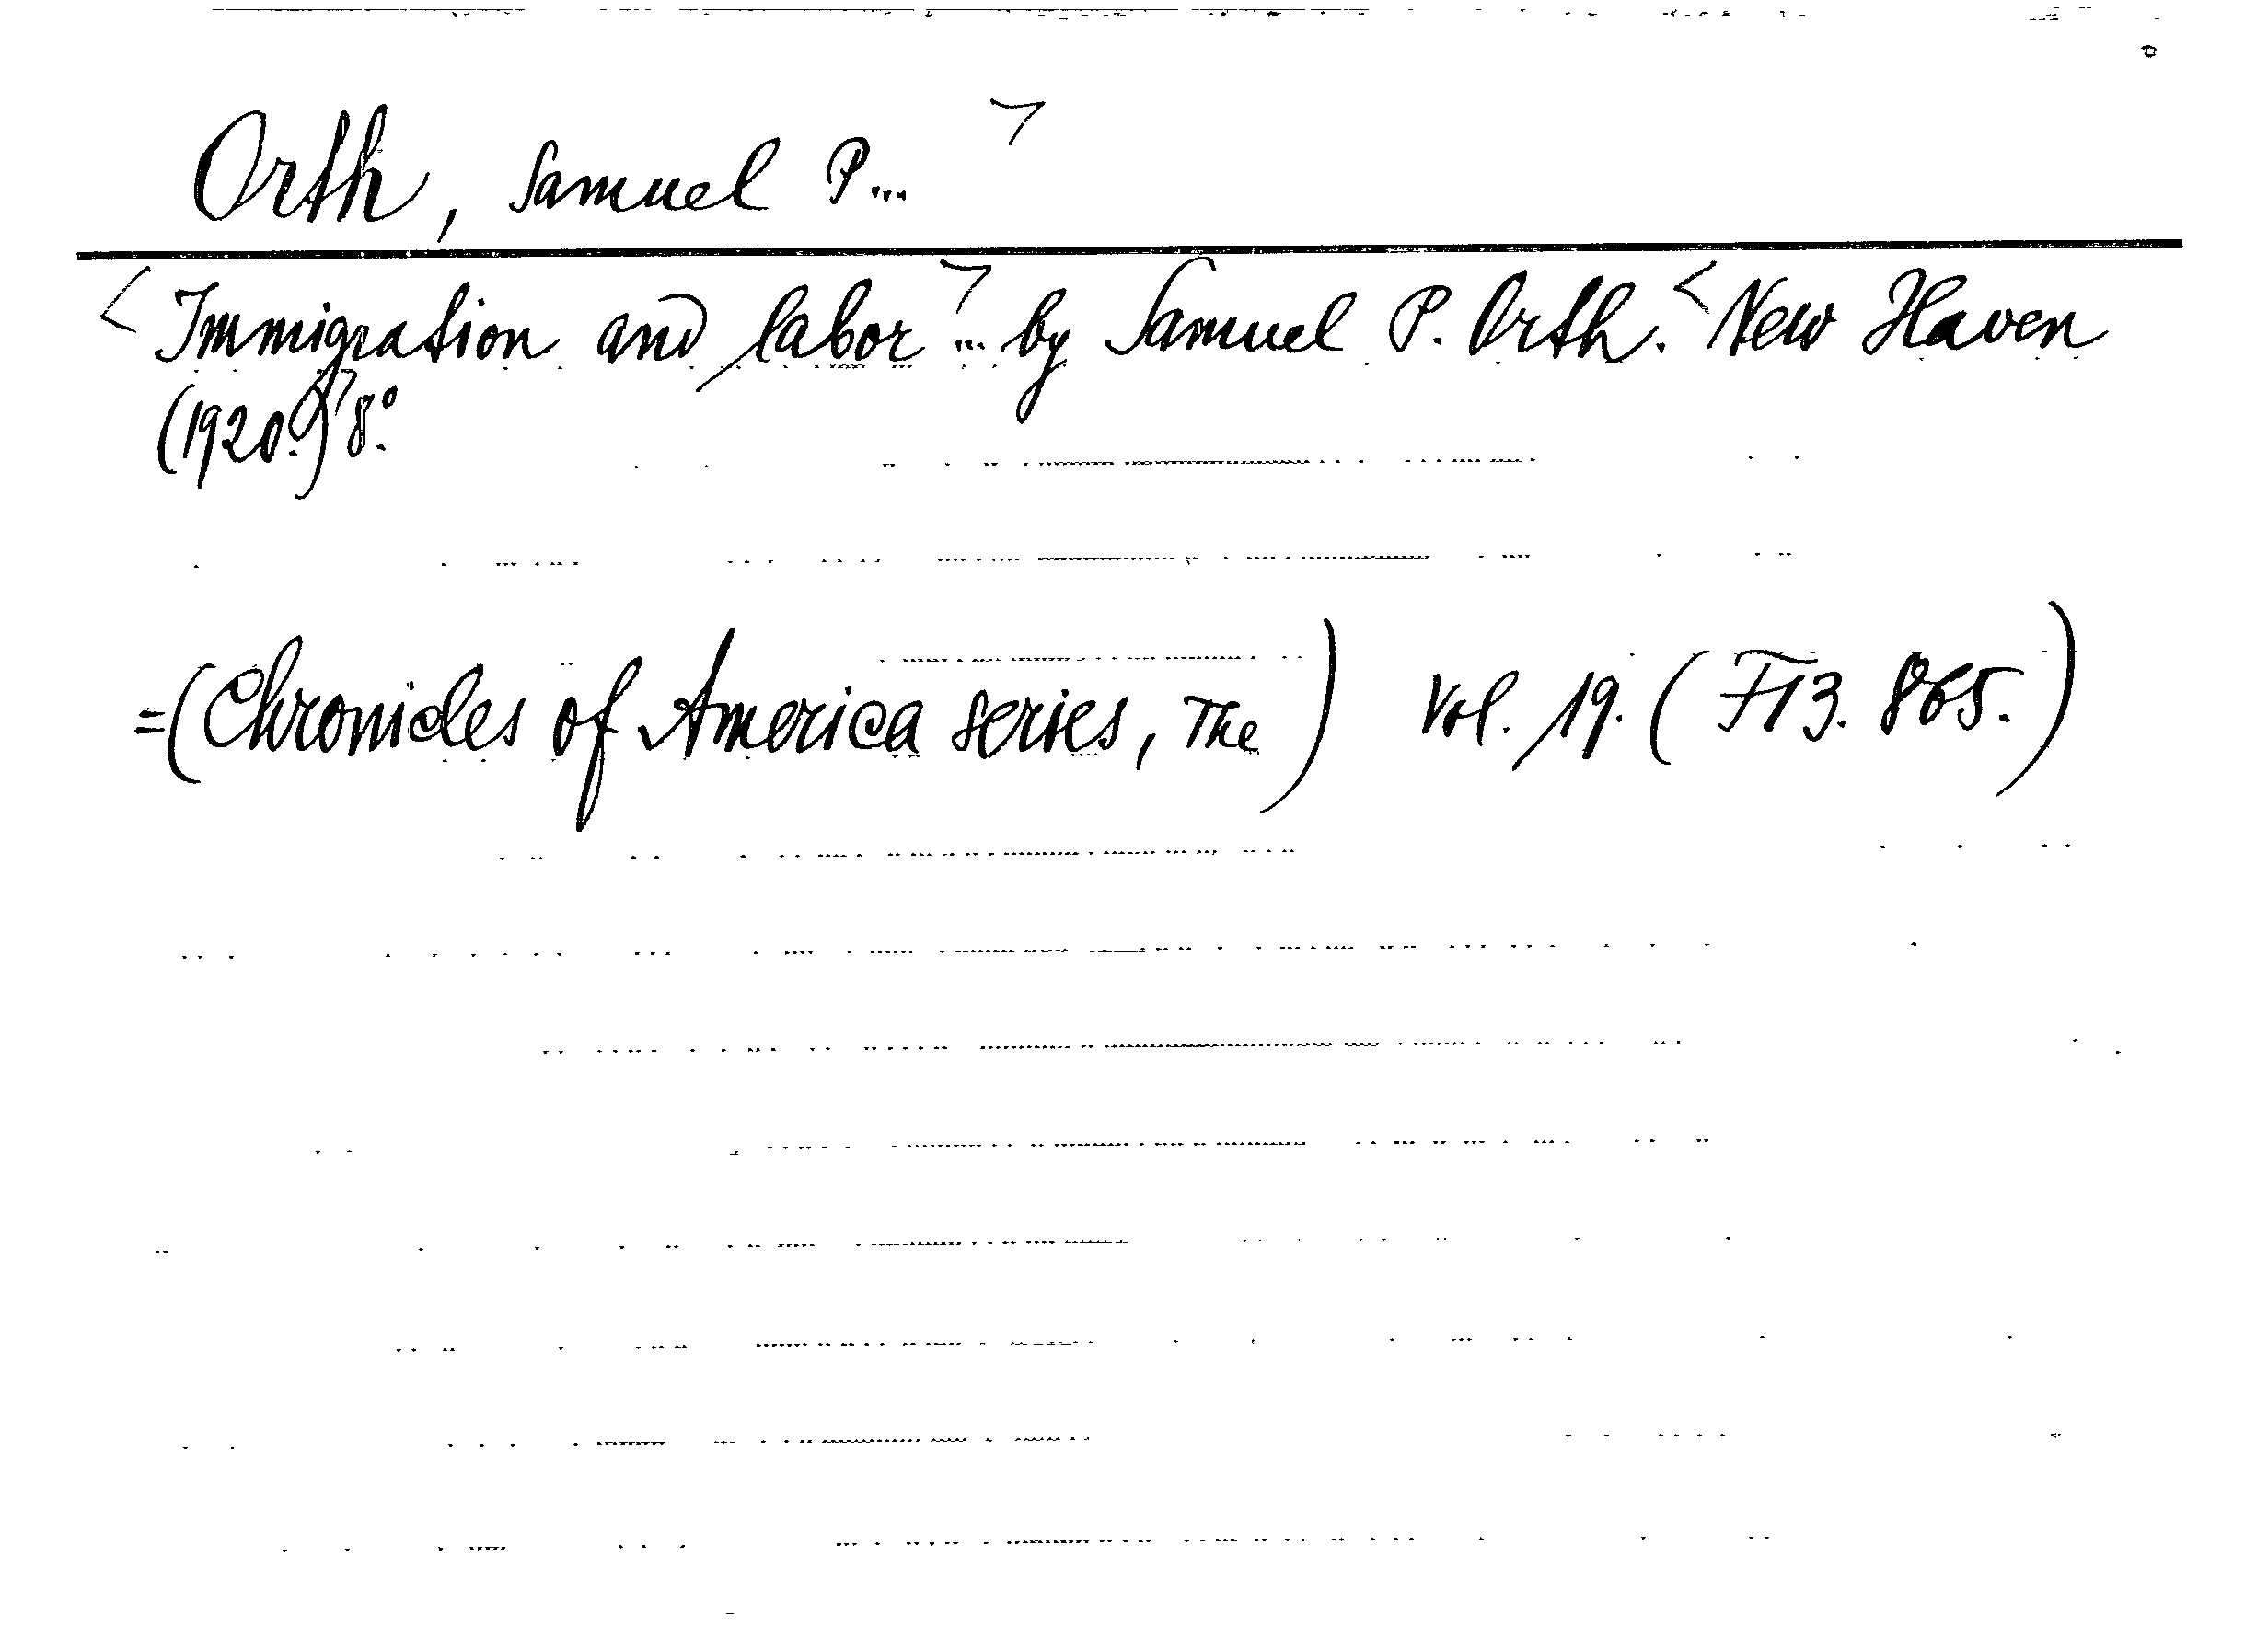 Orth, Samuel P... >
< Immigration and labor > ... by Samuel P. Orth. < New Haven
(1920.) > 8.°
= (Chronicles of America series, The) Vol. 19. (F13. 865.)